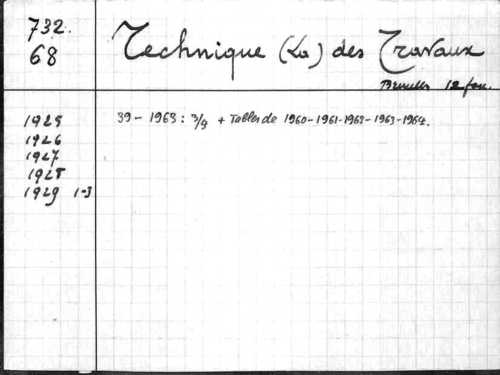 732.
68
Technique (La) des Travaux
Bruxelles 12 fasc.
1925
1926
1927
1928
1929 1-3
39-1963: 7/8 + Tables de 1960-1961-1962-1963-1964.